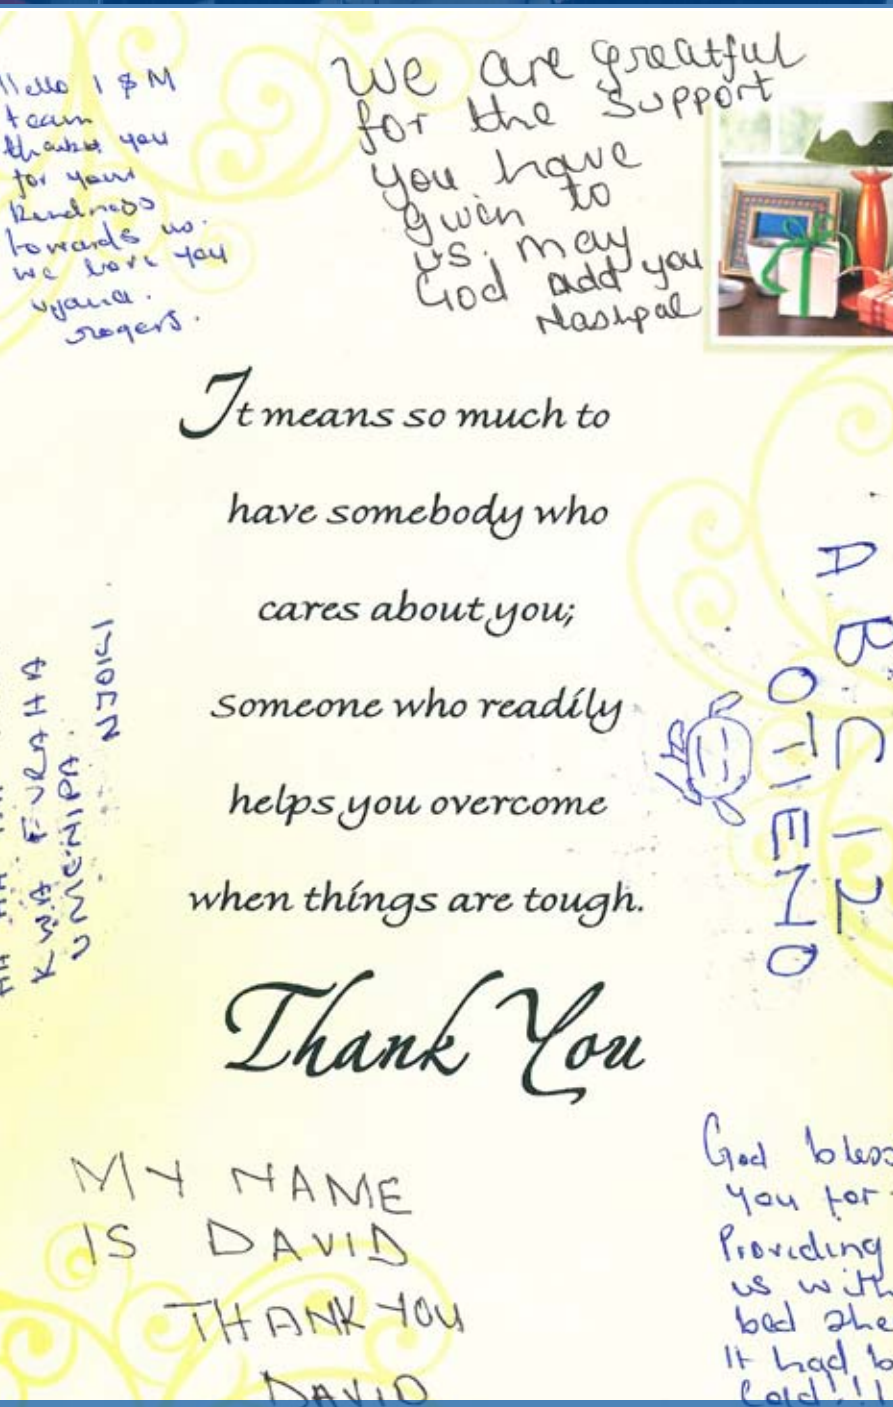 Hello I & M
team
thanks you
for your
kindness
towards us.
we love you
rogers.
We are greatful
for the support
you have
given to
us. may
God add you
Nashpal
It means so much to
have somebody who
cares about you;
someone who readily
helps you overcome
when things are tough.
Thank You
KWA FURAHA
UMENIPA.
NJOKI
A B C 12
OTIENO
MY NAME
IS DAVID
THANK YOU
DAVID
God bless
you for
Providing
us with
bed she
It had b
Cold!!!